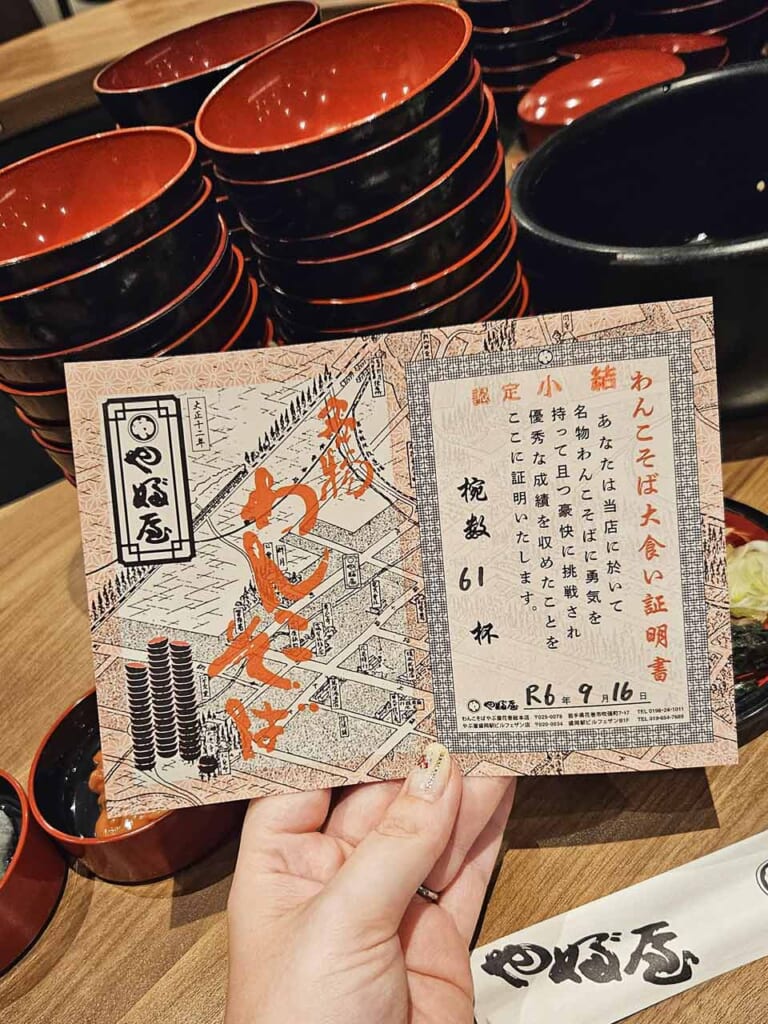 大正十二年
やぶ屋
名物
わんこそば
わんこそば大食い証明書
認定 小結
あなたは当店に於いて
名物わんこそばに勇気を
持って且つ豪快に挑戦され
優秀な成績を収めたことを
ここに証明いたします。
椀数 61 杯
やぶ屋 R6年 9月 16日
わんこそばやぶ屋花巻総本店 〒025-0078 岩手県花巻市吹張町7-17 TEL 0198-24-1011
やぶ屋盛岡駅ビルフェザン店 〒020-0034 盛岡駅ビルフェザンB1F TEL 019-654-7689
やぶ屋